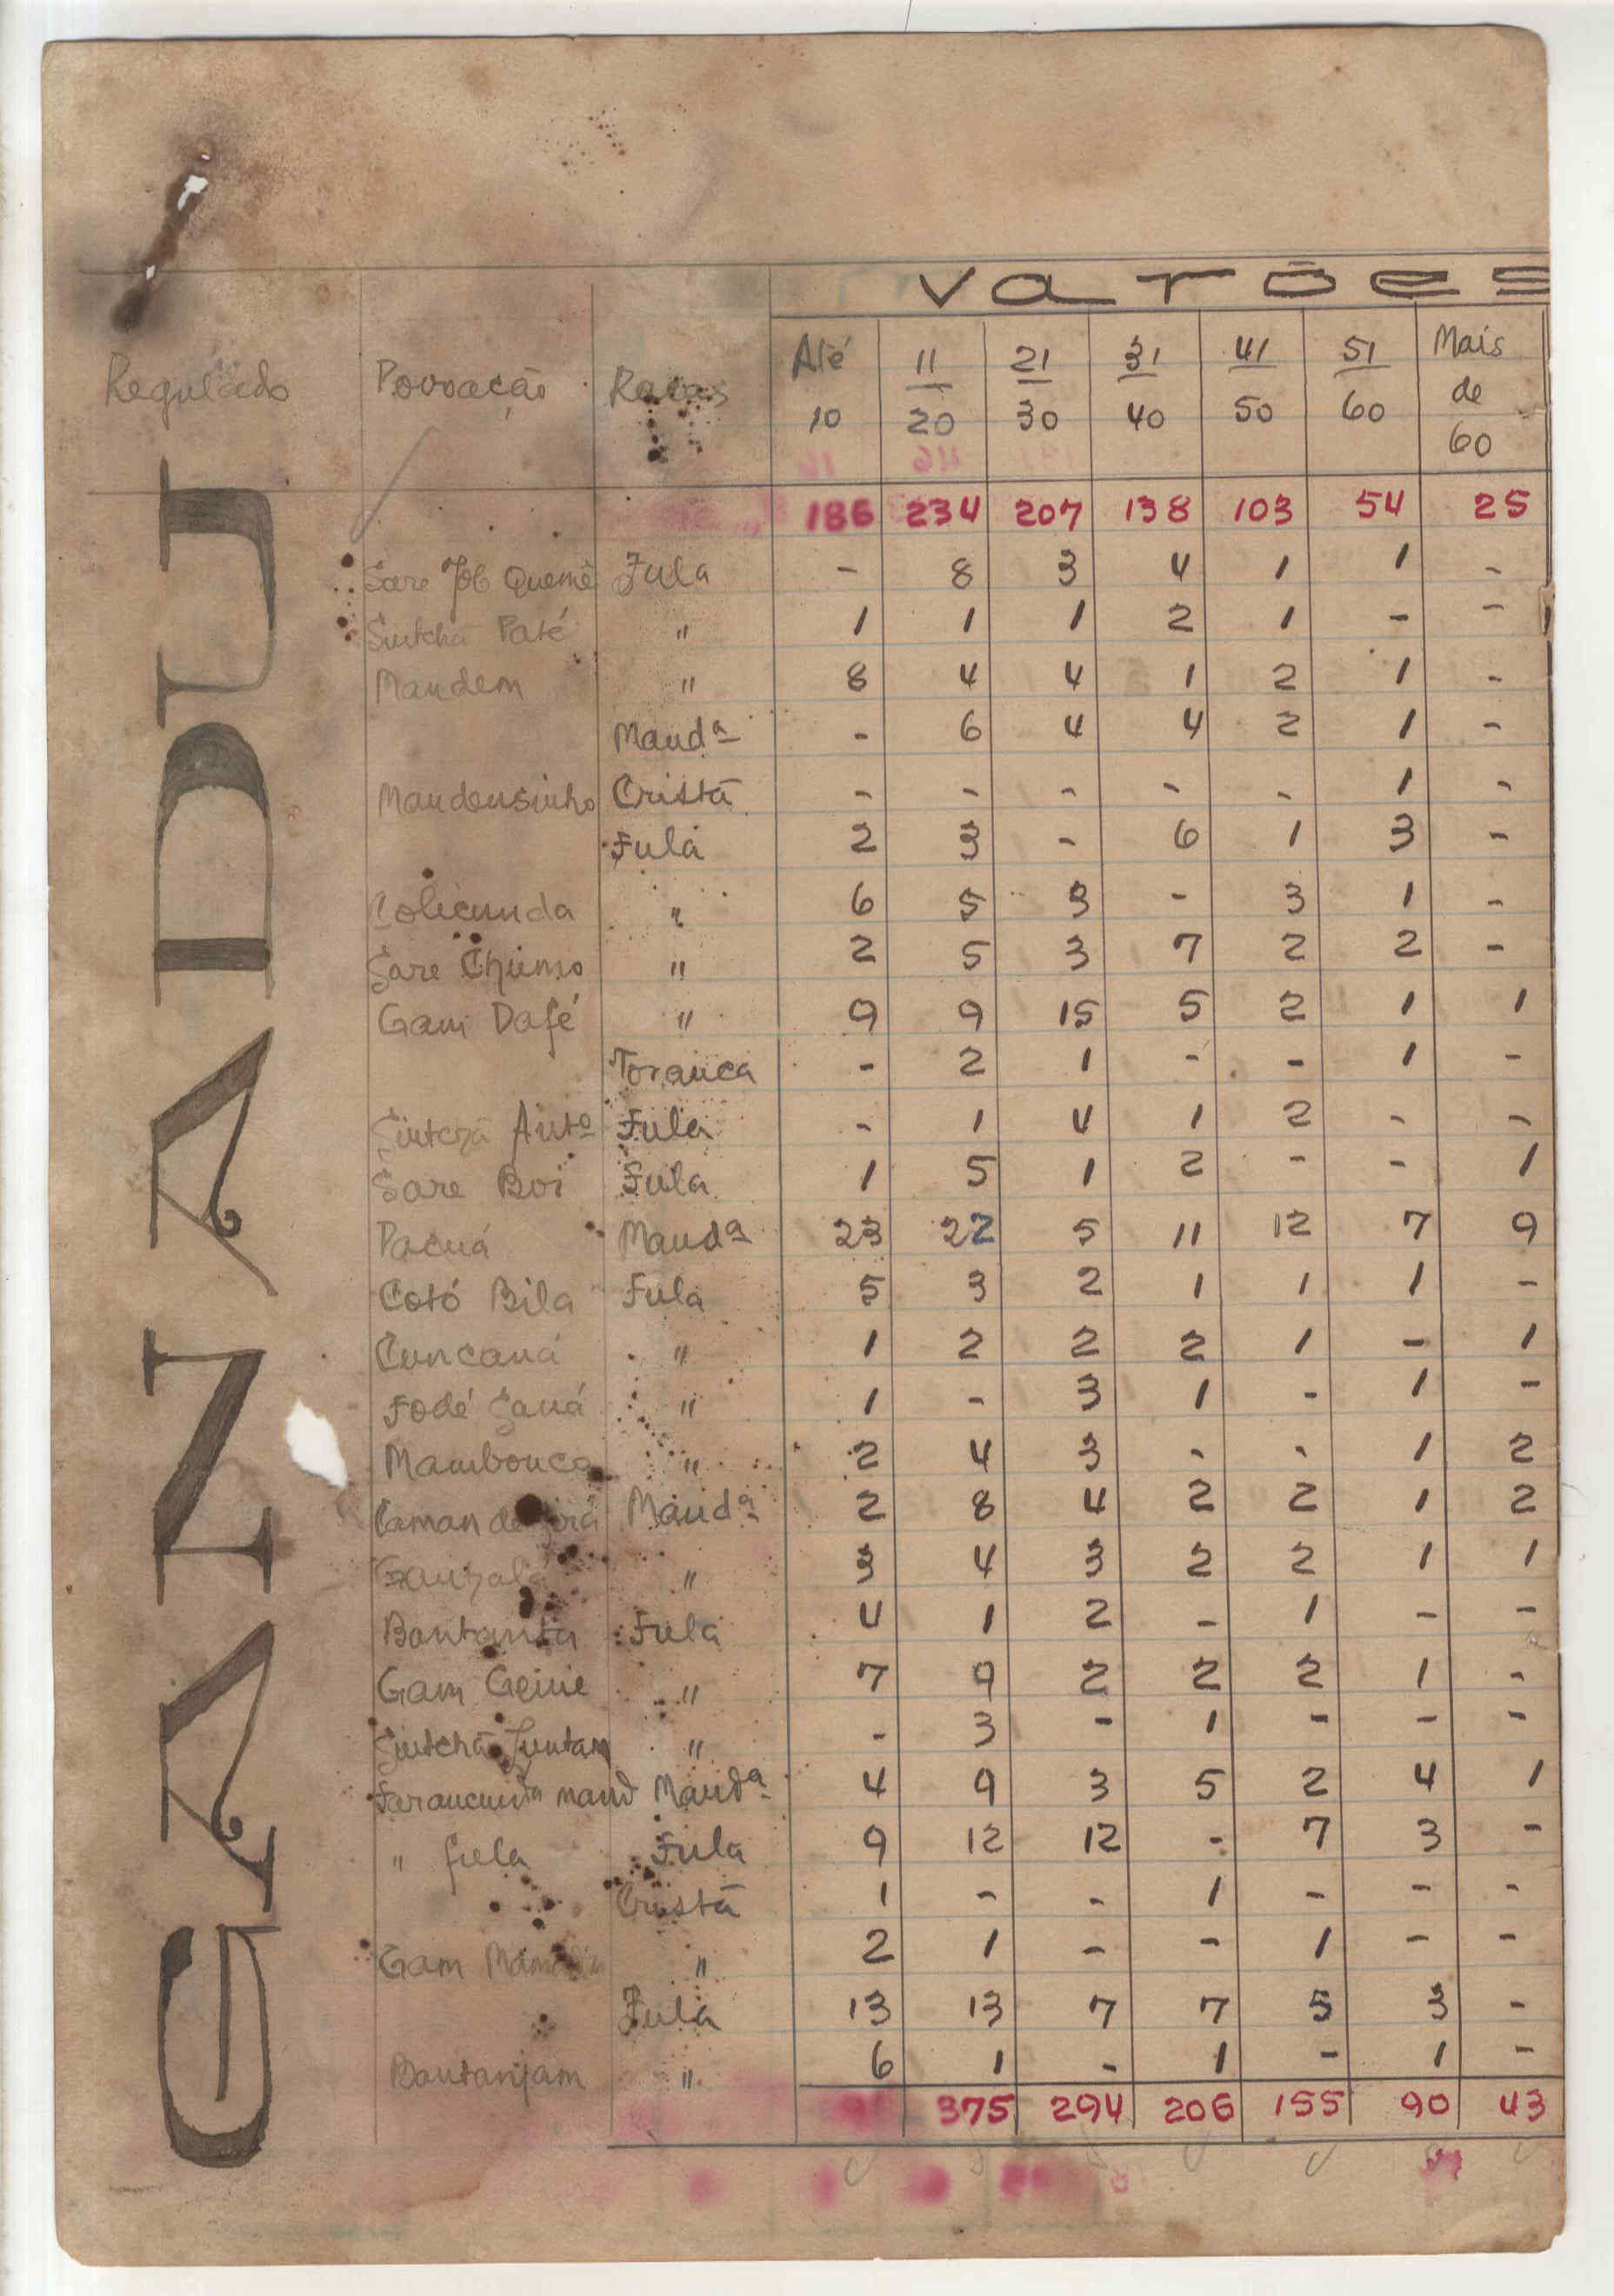 GANADU
Varões
Regulado Povoação Raças Até 10 11 20 21 30 31 40 41 50 51 60 Mais de 60
186 234 207 138 103 54 25
Sare Job Quemê Fula - 8 3 4 1 1 -
Sintchã Paté " 1 1 1 2 1 - -
Mandem " 8 4 4 1 2 1 -
Mandª - 6 4 4 2 1 -
Mandensinho Cristã - - - - - 1 -
Fula 2 3 - 6 1 3 -
Colicunda " 6 5 3 - 3 1 -
Sare Chumo " 2 5 3 7 2 2 -
Gam Dafé " 9 9 15 5 2 1 1
Toranca - 2 1 - - 1 -
Sintchã Antº Fula - 1 4 1 2 - -
Sare Boi Fula 1 5 1 2 - - 1
Pacuá Mandª 23 22 5 11 12 7 9
Cotó Bila Fula 5 3 2 1 1 1 -
Cuncaná " 1 2 2 2 1 - 1
Fodé Saná " 1 - 3 1 - 1 -
Mambonca " 2 4 3 - - 1 2
Caman Mandª 2 8 4 2 2 1 2
" 3 4 3 2 2 1 1
Bantanta Fula 4 1 2 - 1 - -
Gam Geine " 7 9 2 2 2 1 -
Sintchã Juntam " - 3 - 1 - - -
Farancunda mand Mandª 4 9 3 5 2 4 1
" fula Fula 9 12 12 - 7 3 -
Cristã 1 - - 1 - - -
Gam " 2 1 - - 1 - -
Fula 13 13 7 7 5 3 -
Bantanjam " 6 1 - 1 - 1 -
375 294 206 155 90 43